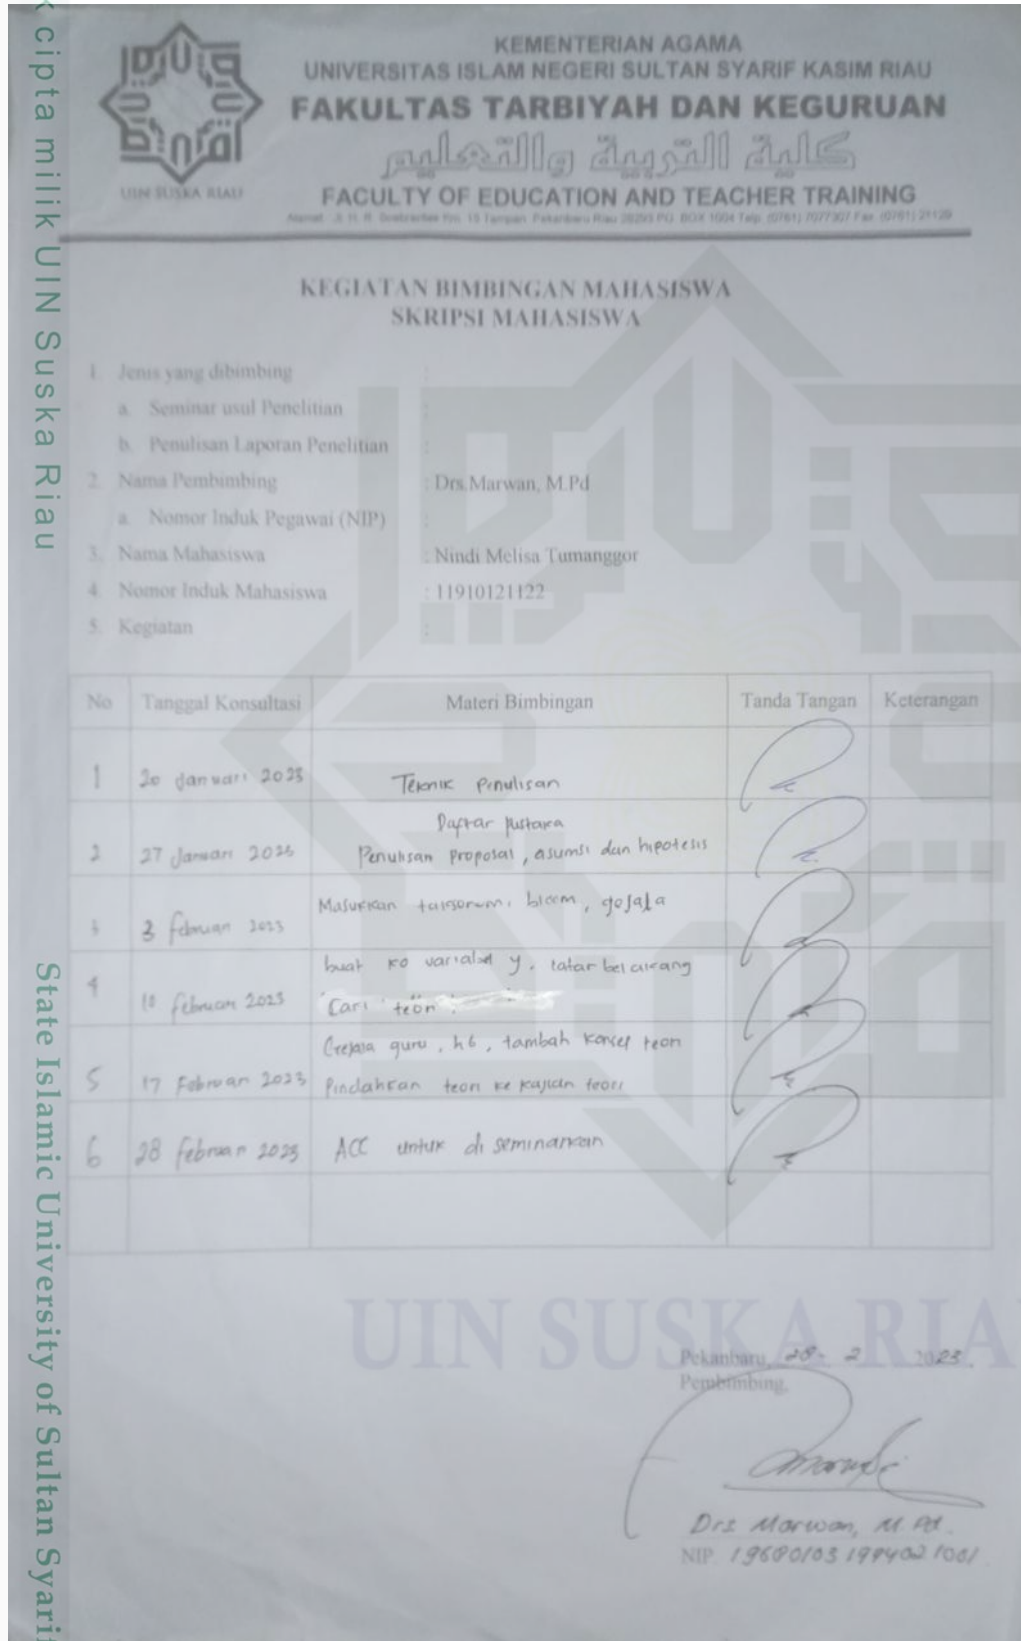 k cipta milik UIN Suska Riau
State Islamic University of Sultan Syarif
UIN SUSKA RIAU
KEMENTERIAN AGAMA
UNIVERSITAS ISLAM NEGERI SULTAN SYARIF KASIM RIAU
FAKULTAS TARBIYAH DAN KEGURUAN
كلية التربية والتعليم
FACULTY OF EDUCATION AND TEACHER TRAINING
Alamat: Jl. H. R. Soebrantas Km. 15 Tampan Pekanbaru Riau 28293 PO. BOX 1004 Telp. (0761) 7077307 Fax. (0761) 21129
KEGIATAN BIMBINGAN MAHASISWA
SKRIPSI MAHASISWA
1. Jenis yang dibimbing :
a. Seminar usul Penelitian :
b. Penulisan Laporan Penelitian :
2. Nama Pembimbing : Drs.Marwan, M.Pd
a. Nomor Induk Pegawai (NIP) :
3. Nama Mahasiswa : Nindi Melisa Tumanggor
4. Nomor Induk Mahasiswa : 11910121122
5. Kegiatan :
No Tanggal Konsultasi Materi Bimbingan Tanda Tangan Keterangan
1 20 Januari 2023 Teknik Penulisan
Daftar pustaka
2 27 Januari 2023 Penulisan proposal, asumsi dan hipotesis
Masukkan bloom, gejala
3 3 februari 2023
buat variabel y, latar belakang
4 10 februari 2023 Cari teori
guru, tambah konsep teori
5 17 Februari 2023 Pindahkan teori ke kajian teori
6 28 februari 2023 ACC untuk di seminarkan
UIN SUSKA RIA
Pekanbaru, 28 - 2 2023
Pembimbing,
Drs Marwan, M.Pd.
NIP. 19680103 199402 1001